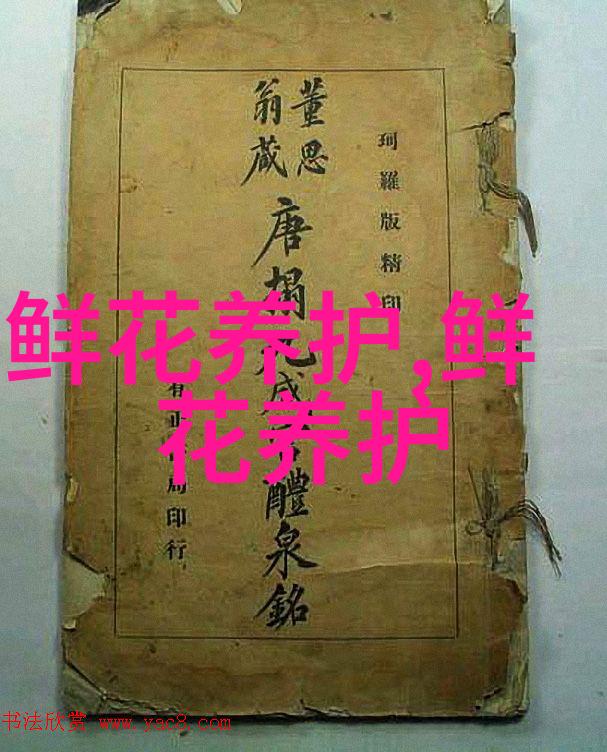 珂羅版精印
董思
翁藏
唐搨九成宮醴泉銘
有正書局印行
鲜花养护,鲜
花养护
书法欣赏 www.yac8.com